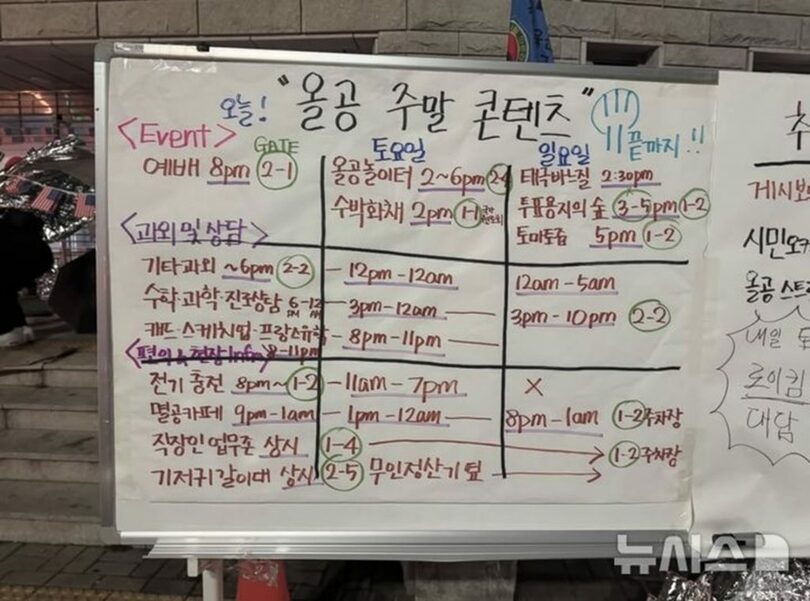 오늘! "올공 주말 콘텐츠" 끝까지!!
<Event> GATE 토요일 일요일
예배 8pm 2-1 올공놀이터 2~6pm 태극바느질 2:30pm
수박화채 2pm 1-1 투표용지의 숲 3-5pm 1-2
토마토즙 5pm 1-2
<과외 및 상담>
기타과외 ~6pm 2-2 12pm-12am 12am-5am
수학·과학·진로상담 6-12 PM AM 3pm-12am 3pm-10pm 2-2
캐드·스케치업·프랑스유학 8-11pm 8pm-11pm
<편의 & 현장 Info>
전기 충전 8pm~ 1-2 11am-7pm X
멸공카페 9pm-1am 1pm-12am 8pm-1am 1-2 주차장
직장인 업무존 상시 1-4 1-2 주차장
기저귀 갈이대 상시 2-5 무인정산기 옆
게시보
시민오
올공 스트
내일
로이킴
대담
뉴시스